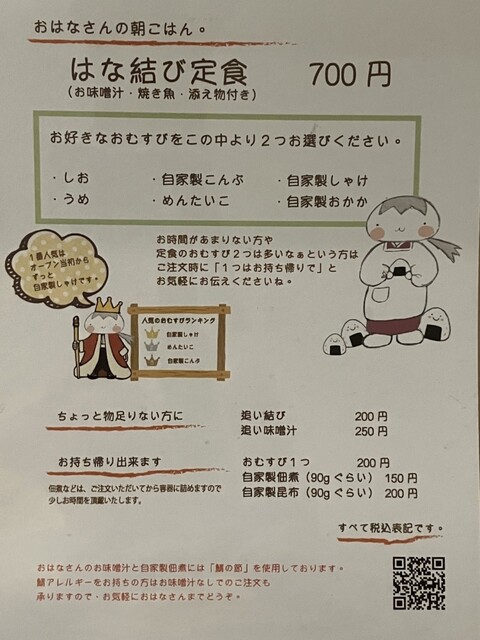 おはなさんの朝ごはん。
はな結び定食　700円
（お味噌汁・焼き魚・添え物付き）
お好きなおむすびをこの中より２つお選びください。
・しお　・自家製こんぶ　・自家製しゃけ
・うめ　・めんたいこ　・自家製おかか
お時間があまりない方や
定食のおむすび２つは多いなぁという方は
ご注文時に「１つはお持ち帰りで」と
お気軽にお伝えくださいね。
１番人気は
オープン当初から
ずっと
自家製しゃけです。
人気のおむすびランキング
自家製しゃけ
めんたいこ
自家製こんぶ
ちょっと物足りない方に　追い結び　200円
追い味噌汁　250円
お持ち帰り出来ます　おむすび１つ　200円
自家製佃煮（90gぐらい）150円
自家製昆布（90gぐらい）200円
佃煮などは、ご注文いただいてから容器に詰めますので
少しお時間を頂戴いたします。
すべて税込表記です。
おはなさんのお味噌汁と自家製佃煮には「鯖の節」を使用しております。
鯖アレルギーをお持ちの方はお味噌汁なしでのご注文も
承りますので、お気軽におはなさんまでどうぞ。